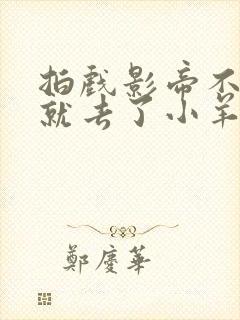 拍戏影帝不
就去了小羊
鄭慶華